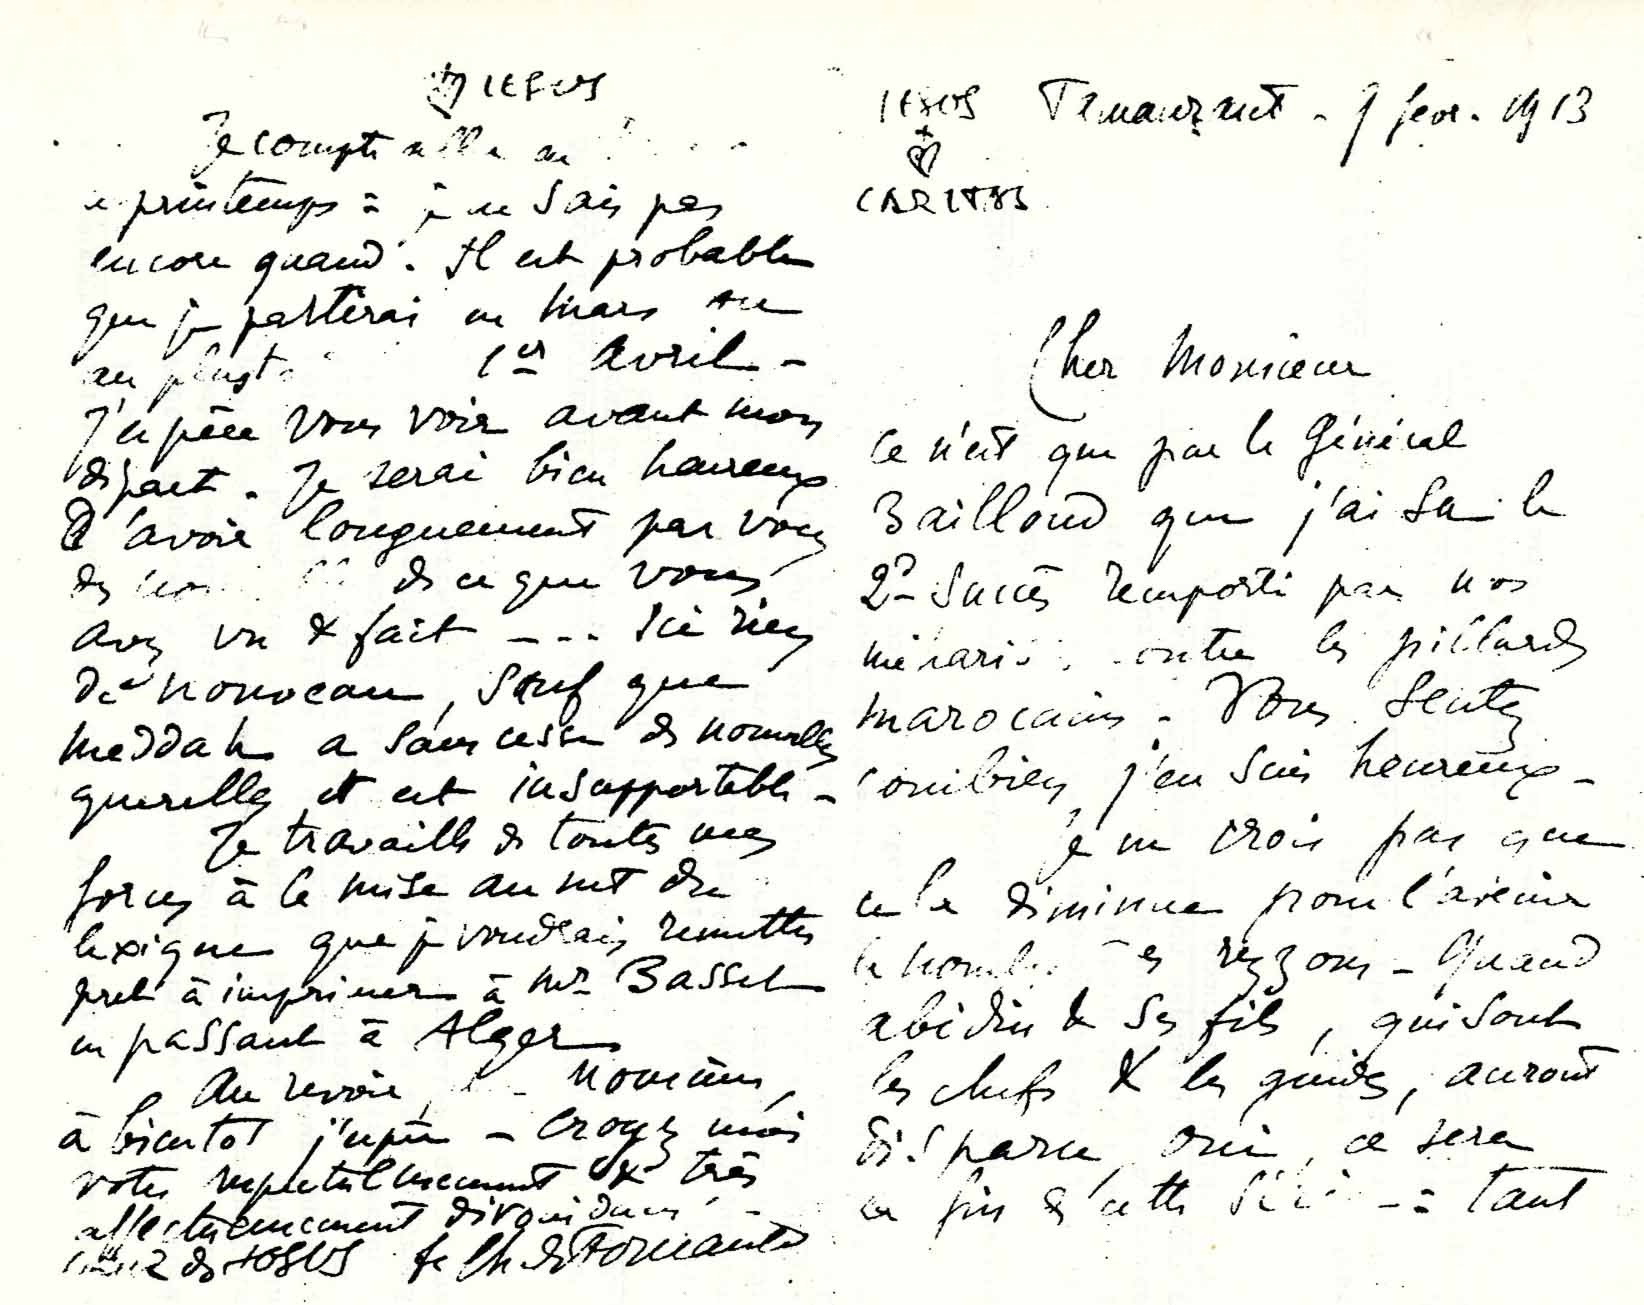 IESUS Tamanrasset - 9 fevr. 1913
CARITAS
Cher Monsieur
Ce n'est que par le Général
Bailloud que j'ai su le
2e succès remporté par nos
contre les pillards
marocains - Vous sentez
combien j'en suis heureux -
Je ne crois pas que
cela diminue pour l'avenir
le nombre des rezzous - Quand
abidin & ses fils, qui sont
les chefs & les guides, auront
disparu, oui, ce sera
la fin de cette : tant
IESUS
Je compte
printemps : je ne sais pas
encore quand. Il est probable
que je partirai en mars ou
au plus 1er avril -
J'espère vous voir avant mon
départ. Je serai bien heureux
d'avoir longuement par vous
des de ce que vous
avez vu & fait - - - Ici rien
de nouveau, sauf que
Meddah a sans cesse de nouvelles
querelles et est insupportable -
Je travaille de toutes mes
forces à la mise au net du
lexique que je voudrais remettre
pret à imprimer à Mr Basset
en passant à Alger
Au revoir, Monsieur,
à bientot j'espère - Croyez moi
votre respectueusement & très
affectueusement
de JESUS fr Ch. de Foucauld